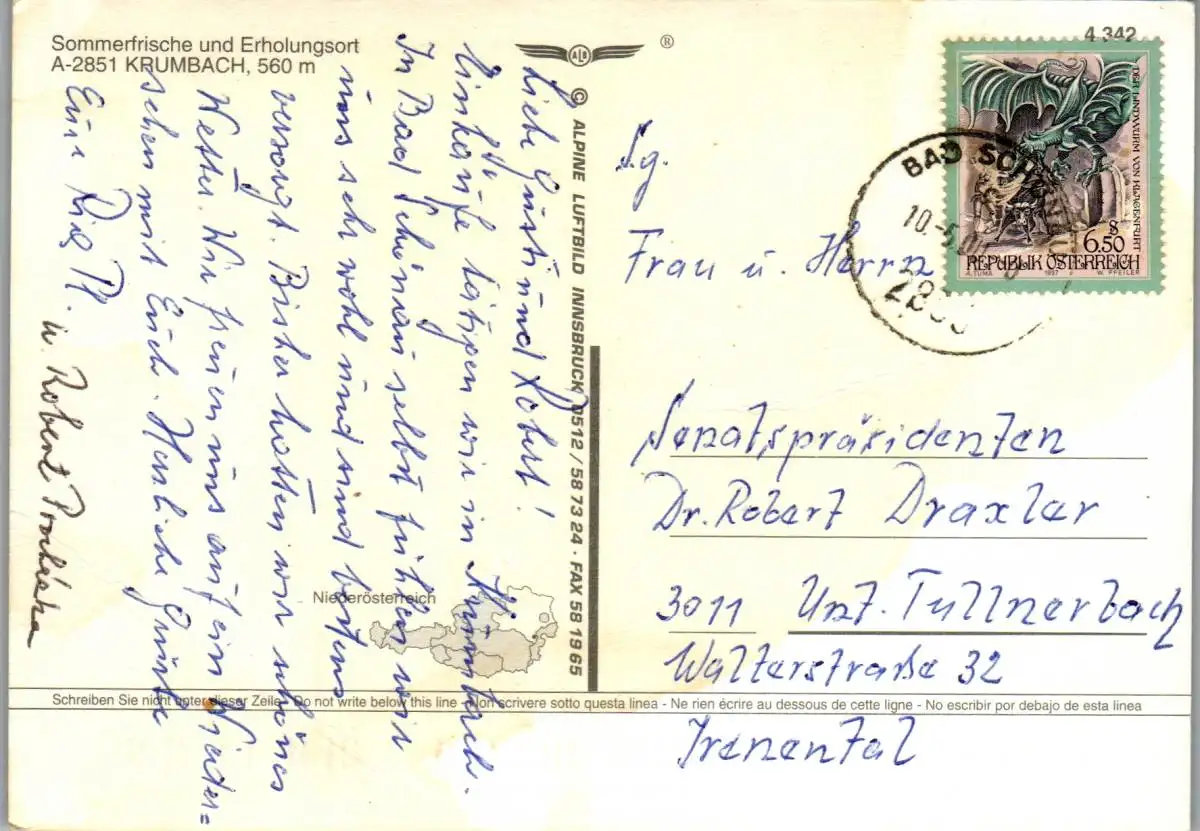 Sommerfrische und Erholungsort
A-2851 KRUMBACH, 560 m
ALB
®
© ALPINE LUFTBILD INNSBRUCK 0512 / 58 73 24 · FAX 58 19 65
Liebe Gusti und Robert!
Einkäufe tätigen wir in Krumbach.
In Bad Schönau selbst fühlen wir
uns sehr wohl und sind bestens
versorgt. Bisher hatten wir schönes
Wetter. Wir freuen uns auf ein Wieder=
sehen mit Euch. Herzliche Grüße
Eure
u. Robert
Niederösterreich
4 342
DER LINDWURM VON KLAGENFURT
S
6.50
REPUBLIK ÖSTERREICH
A. TUMA 1997 W. PFEILER
BAD SCHÖNAU
S.g.
Frau u. Herrn
Senatspräsidenten
Dr. Robert Draxler
3011 Unt. Tullnerbach
Walterstraße 32
Irenental
Schreiben Sie nicht unter dieser Zeile - Do not write below this line - Non scrivere sotto questa linea - Ne rien écrire au dessous de cette ligne - No escribir por debajo de esta linea